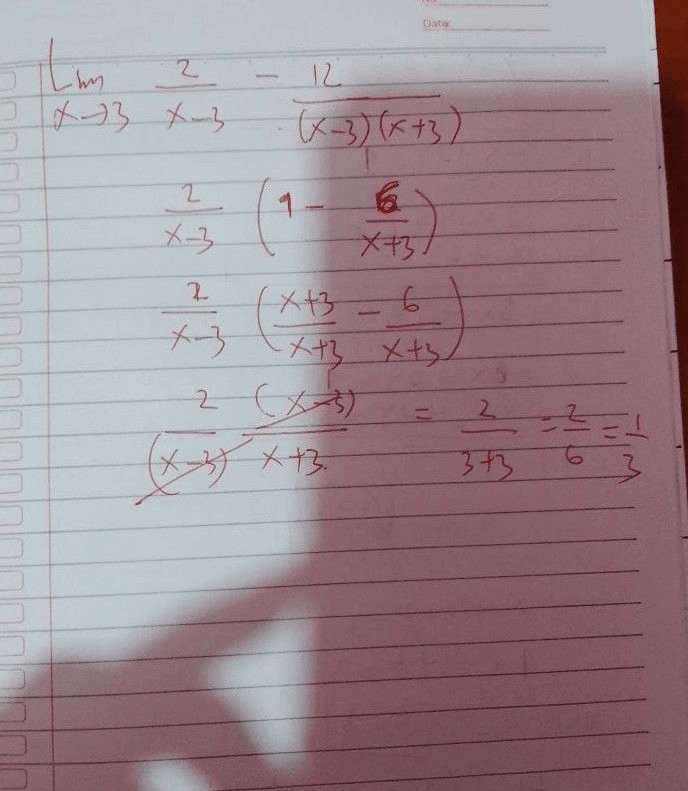 Date:
Lim x→3 2/(x-3) - 12/((x-3)(x+3))
2/(x-3) (1 - 6/(x+3))
2/(x-3) ((x+3)/(x+3) - 6/(x+3))
2/(x-3) (x-3)/(x+3) = 2/(3+3) = 2/6 = 1/3